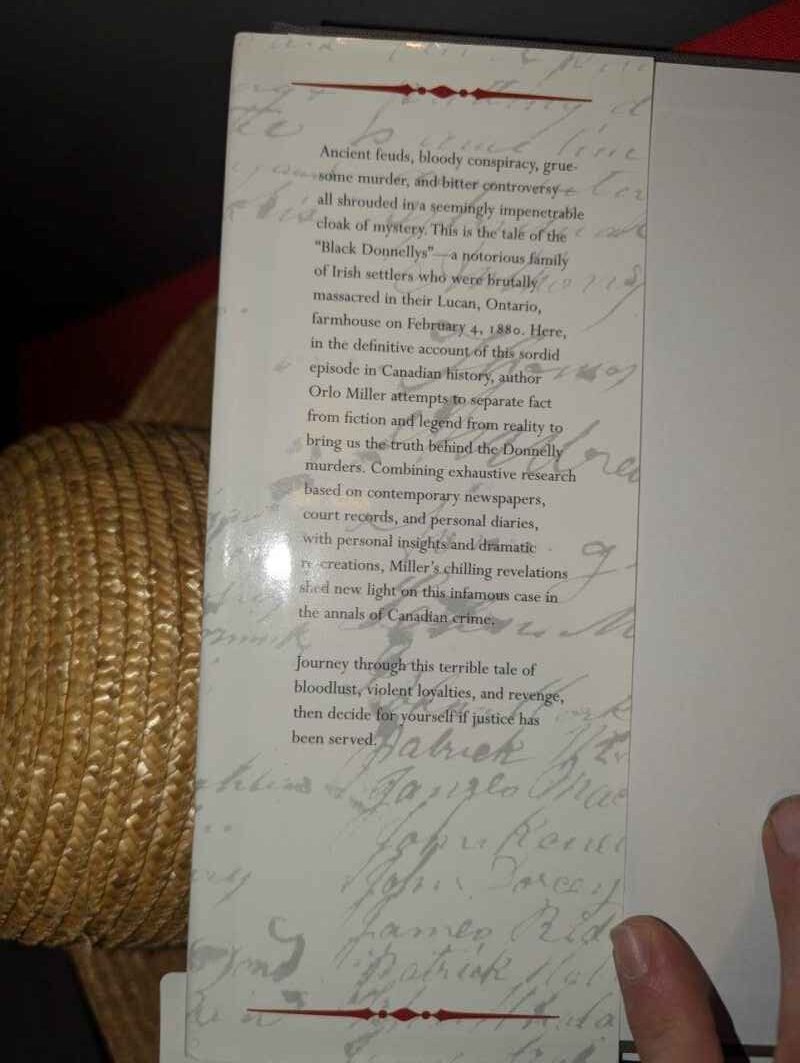 Ancient feuds, bloody conspiracy, grue-
some murder, and bitter controversy—
all shrouded in a seemingly impenetrable
cloak of mystery. This is the tale of the
“Black Donnellys”—a notorious family
of Irish settlers who were brutally
massacred in their Lucan, Ontario,
farmhouse on February 4, 1880. Here,
in the definitive account of this sordid
episode in Canadian history, author
Orlo Miller attempts to separate fact
from fiction and legend from reality to
bring us the truth behind the Donnelly
murders. Combining exhaustive research
based on contemporary newspapers,
court records, and personal diaries,
with personal insights and dramatic
re-creations, Miller’s chilling revelations
shed new light on this infamous case in
the annals of Canadian crime.
Journey through this terrible tale of
bloodlust, violent loyalties, and revenge,
then decide for yourself if justice has
been served.
Patrick
John
James
Patrick